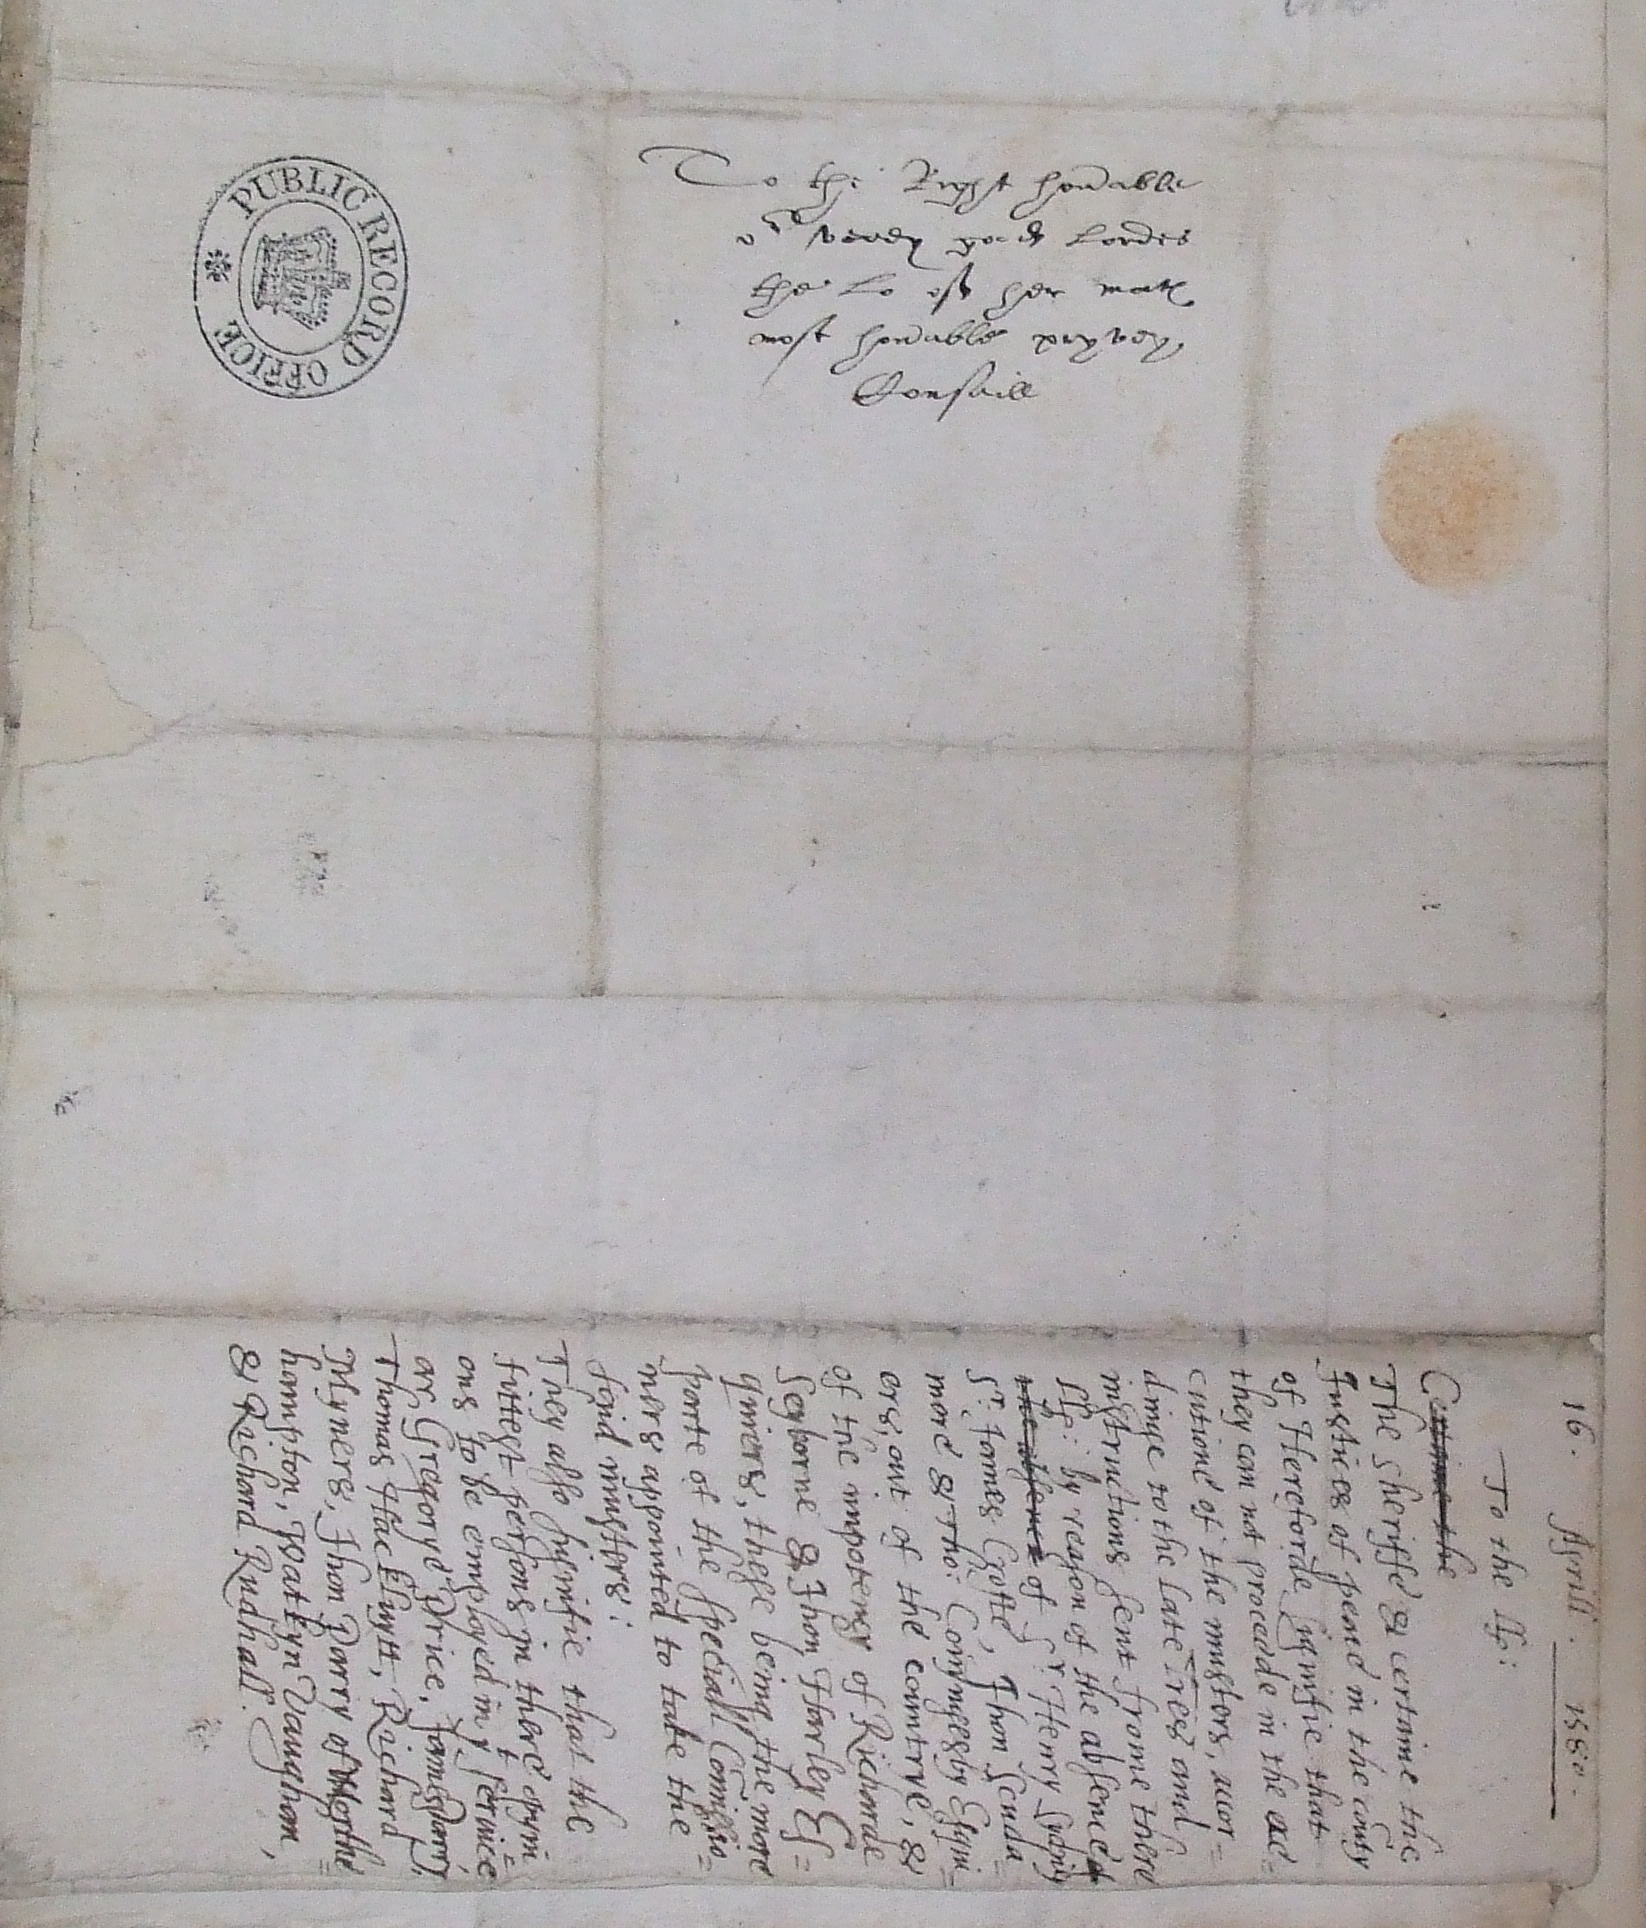 To the Right honorable
or verey good Lordes
the Lo of her matꝭ
most honorable pryvey
Consaill
PUBLIC RECORD OFFICE
16. Aprill. 1580.
To the LLs:
Certaine the
The Sheriffe & certaine the
Justices of peace in the cunty
of Hereforde signifie that
they can not procede in the exe=
cutione of the musters, accor=
dinge to the late lres and
instructions sent frome there
LLs: by reason of the absence
the absence of Sr Henry Sydney
Sr. James Crofte, Jhon Scuda=
more & Tho: Conyngesby Esqui=
ers, out of the countrye, &
of the impotency of Richarde
Seyborne & Jhon Harley Es=
quiers, these being the more
parte of the speciall Comissio=
ners appointed to take the
said musters:
They also signifie that the
fittest persons in there opini=
ons to be employed in yt service
ar Gregorye Price, James Parry,
Thomas Hac Cluyt, Richard
Myners, Jhon Parry of Morthe=
hampton, Watkyn Vaughan,
& Richard Rudhall.